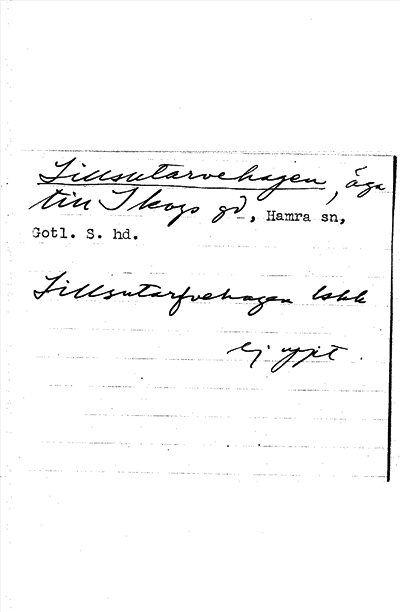 Lillsutarvehagen, äga
till Skogs gd, Hamra sn,
Gotl. S. hd.
Lillsutarfvehagen lskk
ej uppt.